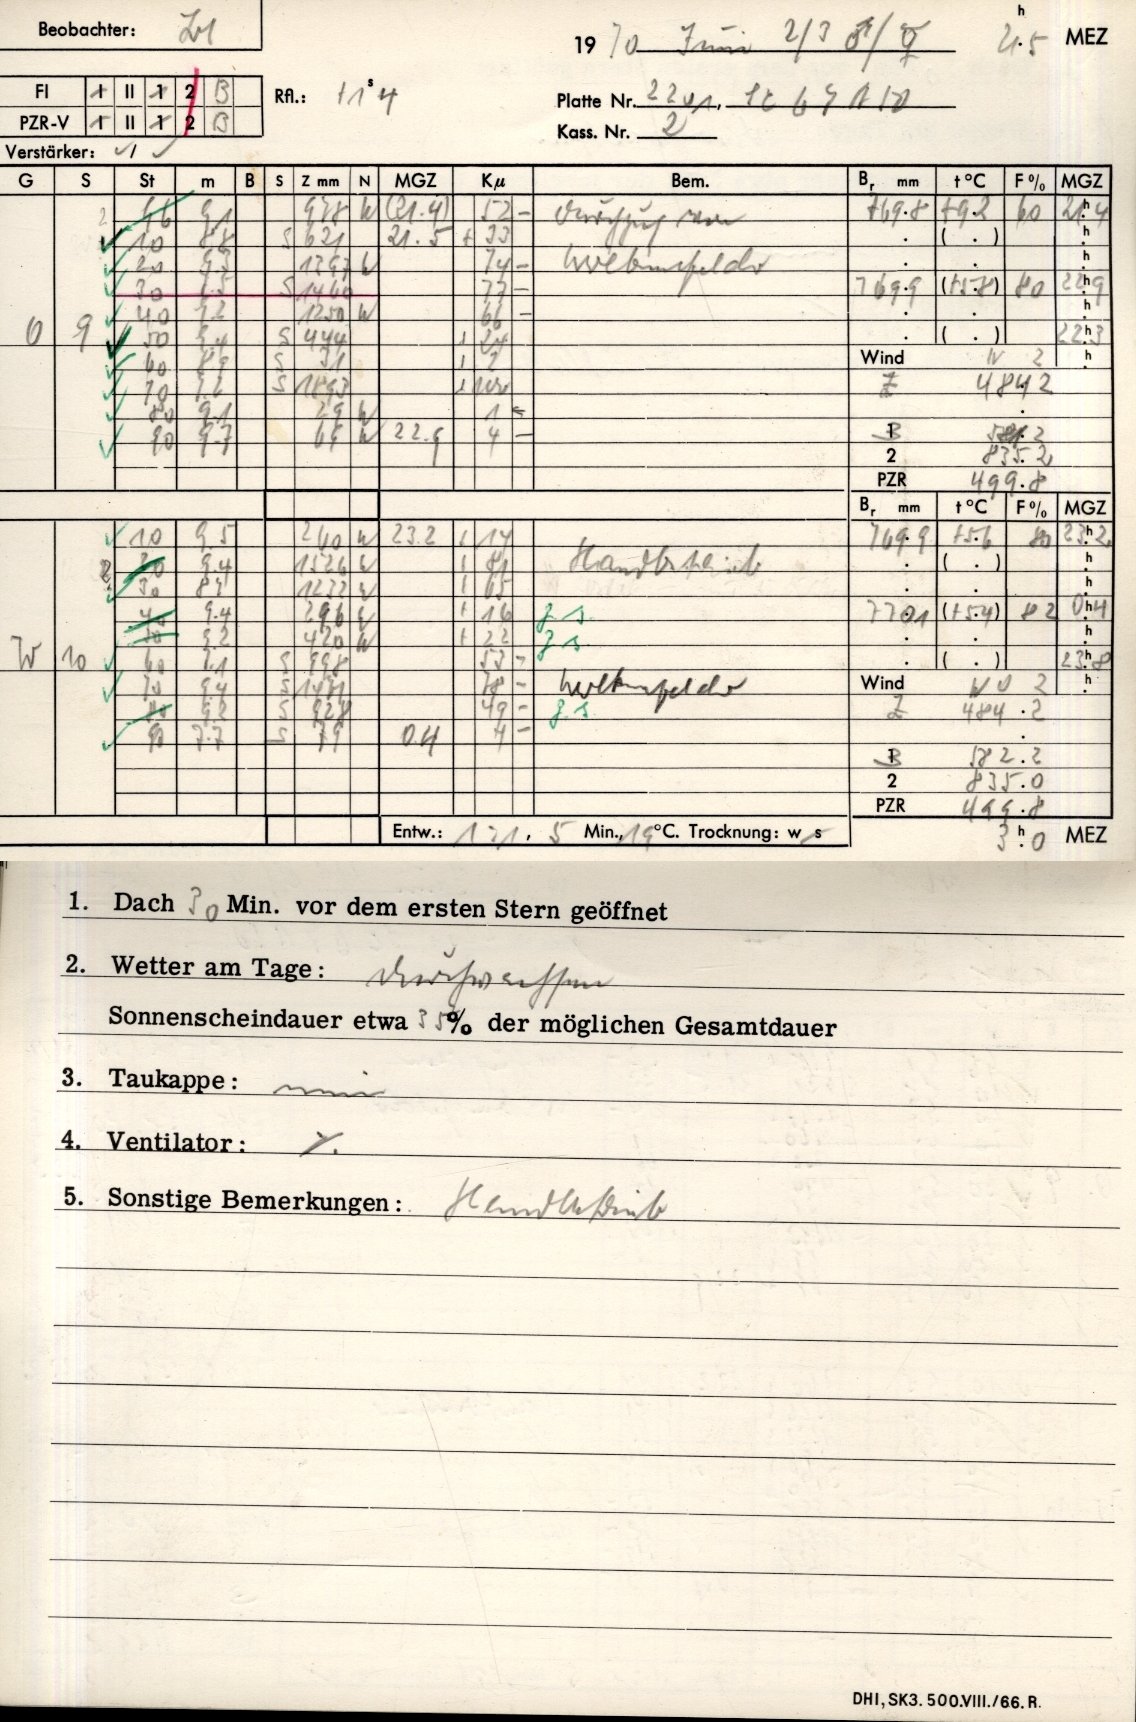 Beobachter:
19 70 Juni 2/3 ♂/♀ 21.5 h MEZ
FI I II 1 2 B
PZR-V I II 1 2 B
Rfl.: +1 s 4
Platte Nr. 2201,
Kass. Nr. 2
Verstärker: √ / √
G S St m B S Z mm N MGZ Kμ Bem. Br mm t °C F % MGZ
9.1 978 W (21.4) 52 – Durchzug von 769.8 +9.2 60 21.4 h
10 8.8 S 621 21.5 + 33 ( . ) h
20 1397 W 74 – Wolkenfelder h
30 S 1460 77 – 769.9 (+5.8) 80 22.9 h
40 1250 W 66 – h
O 9 50 9.4 S 444 + 24 ( . ) 22.3 h
60 8.9 S 31 + 2 Wind W 2 h
70 S 1893 + 100 Z 484.2
80 9.1 29 W 1 –
90 9.7 69 W 22.9 4 – B 581.2
2 835.2
PZR 499.8
Br mm t °C F % MGZ
10 9.5 260 W 23.2 + 14 769.9 +5.6 80 23.2 h
9.4 1526 W + 81 Handbetrieb ( . ) h
30 8.9 1232 W + 65 h
40 9.4 296 W + 16 z.s. 770.1 (+5.4) 82 0.4 h
50 9.2 420 W + 22 z.s. h
W 10 60 S 998 53 – ( . ) 23.8 h
70 9.4 S 1471 78 – Wolkenfelder Wind W 2 h
80 9.2 S 928 49 – z.s. Z 484.2
90 7.7 S 79 0.4 4 –
B 582.2
2 835.0
PZR 499.8
Entw.: 1:1, 5 Min., 19 °C. Trocknung: w s 3.0 h MEZ
1. Dach 30 Min. vor dem ersten Stern geöffnet
2. Wetter am Tage: durchwachsen
Sonnenscheindauer etwa 35 % der möglichen Gesamtdauer
3. Taukappe:
4. Ventilator: ٪
5. Sonstige Bemerkungen: Handbetrieb
DHI, SK3. 500.VIII./66. R.